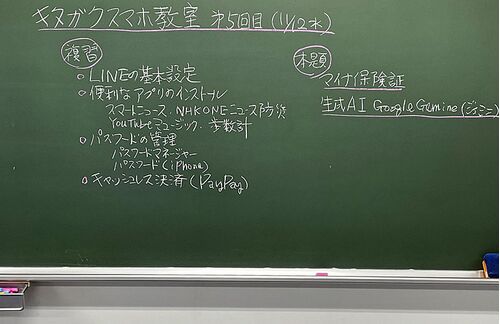 キタガクスマホ教室 第5回目(11/12水)
復習
○LINEの基本設定
○便利なアプリのインストール
スマートニュース、NHKONEニュース防災
YouTubeミュージック、歩数計
○パスワードの管理
パスワードマネージャー
パスワード(iPhone)
○キャッシュレス決済(PayPay)
本題
マイナ保険証
生成AI Google Gemine(ジェミニ)